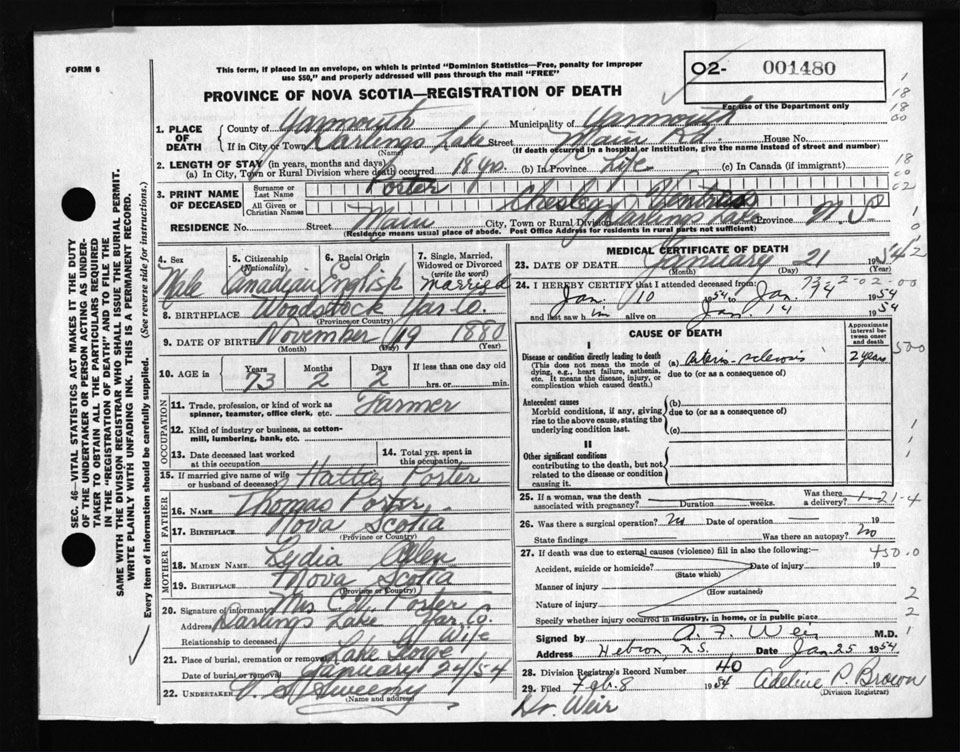 FORM 6
This form, if placed in an envelope, on which is printed "Dominion Statistics—Free, penalty for improper
use $50," and properly addressed will pass through the mail "FREE"
O2- 001480
For use of the Department only
PROVINCE OF NOVA SCOTIA—REGISTRATION OF DEATH
1. PLACE OF DEATH
County of Yarmouth Municipality of Yarmouth
If in City or Town Darlings Lake Street Main Rd. House No.
(Name) (If death occurred in a hospital or institution, give the name instead of street and number)
2. LENGTH OF STAY (in years, months and days)
(a) In City, Town or Rural Division where death occurred 18 yrs. (b) In Province Life (c) In Canada (if immigrant)
3. PRINT NAME OF DECEASED
Surname or Last Name Porter
All Given or Christian Names Chesley
RESIDENCE No. Street Main City, Town or Rural Division Darlings Lake Province N.S.
(Residence means usual place of abode. Post Office Address for residents in rural parts not sufficient)
4. Sex Male
5. Citizenship (Nationality) Canadian
6. Racial Origin English
7. Single, Married, Widowed or Divorced (write the word) Married
8. BIRTHPLACE Woodstock Yar. Co.
(Province or Country)
9. DATE OF BIRTH November 19 1880
(Month) (Day) (Year)
10. AGE in Years 73 Months 2 Days 2 If less than one day old
hrs. or min.
OCCUPATION
11. Trade, profession, or kind of work as spinner, teamster, office clerk, etc. Farmer
12. Kind of industry or business, as cotton-mill, lumbering, bank, etc.
13. Date deceased last worked at this occupation
14. Total yrs. spent in this occupation
15. If married give name of wife or husband of deceased Hattie Porter
FATHER
16. Name Thomas Porter
17. Birthplace Nova Scotia
(Province or Country)
MOTHER
18. MAIDEN NAME Lydia
19. BIRTHPLACE Nova Scotia
(Province or Country)
20. Signature of informant Mrs C. V. Porter
Address Darlings Lake Yar. Co.
Relationship to deceased Wife
21. Place of burial, cremation or removal Lake George
Date of burial or removal January 24/54
22. UNDERTAKER V. S. Sweeny
(Name and address)
MEDICAL CERTIFICATE OF DEATH
23. DATE OF DEATH January 21 1954
(Month) (Day) (Year)
24. I HEREBY CERTIFY that I attended deceased from:
Jan. 10 1954 to Jan. 1954
and last saw him alive on Jan. 14 1954
CAUSE OF DEATH
Approximate interval between onset and death
I
Disease or condition directly leading to death (a) 2 years
(This does not mean the mode of dying, e.g., heart failure, asthenia, etc. It means the disease, injury, or complication which caused death.)
due to (or as a consequence of)
Antecedent causes
Morbid conditions, if any, giving rise to the above cause, stating the underlying condition last.
(b)
due to (or as a consequence of)
(c)
II
Other significant conditions
contributing to the death, but not related to the disease or condition causing it.
25. If a woman, was the death associated with pregnancy? Duration weeks. Was there a delivery?
26. Was there a surgical operation? No Date of operation 19
State findings Was there an autopsy? No
27. If death was due to external causes (violence) fill in also the following:—
Accident, suicide or homicide? Date of injury 19
(State which)
Manner of injury
(How sustained)
Nature of injury
Specify whether injury occurred in industry, in home, or in public place
Signed by A. F. Weir M.D.
Address Hebron N.S. Date Jan. 25 1954
28. Division Registrar's Record Number 40
29. Filed Feb. 8 1954 Adeline P. Brown
(Division Registrar)
Dr. Weir
SEC. 46—VITAL STATISTICS ACT MAKES IT THE DUTY
OF THE UNDERTAKER OR PERSON ACTING AS UNDER-
TAKER TO OBTAIN ALL THE PARTICULARS REQUIRED
IN THE "REGISTRATION OF DEATH" AND TO FILE THE
SAME WITH THE DIVISION REGISTRAR WHO SHALL ISSUE THE BURIAL PERMIT.
WRITE PLAINLY WITH UNFADING INK. THIS IS A PERMANENT RECORD.
Every item of information should be carefully supplied. (See reverse side for instructions.)